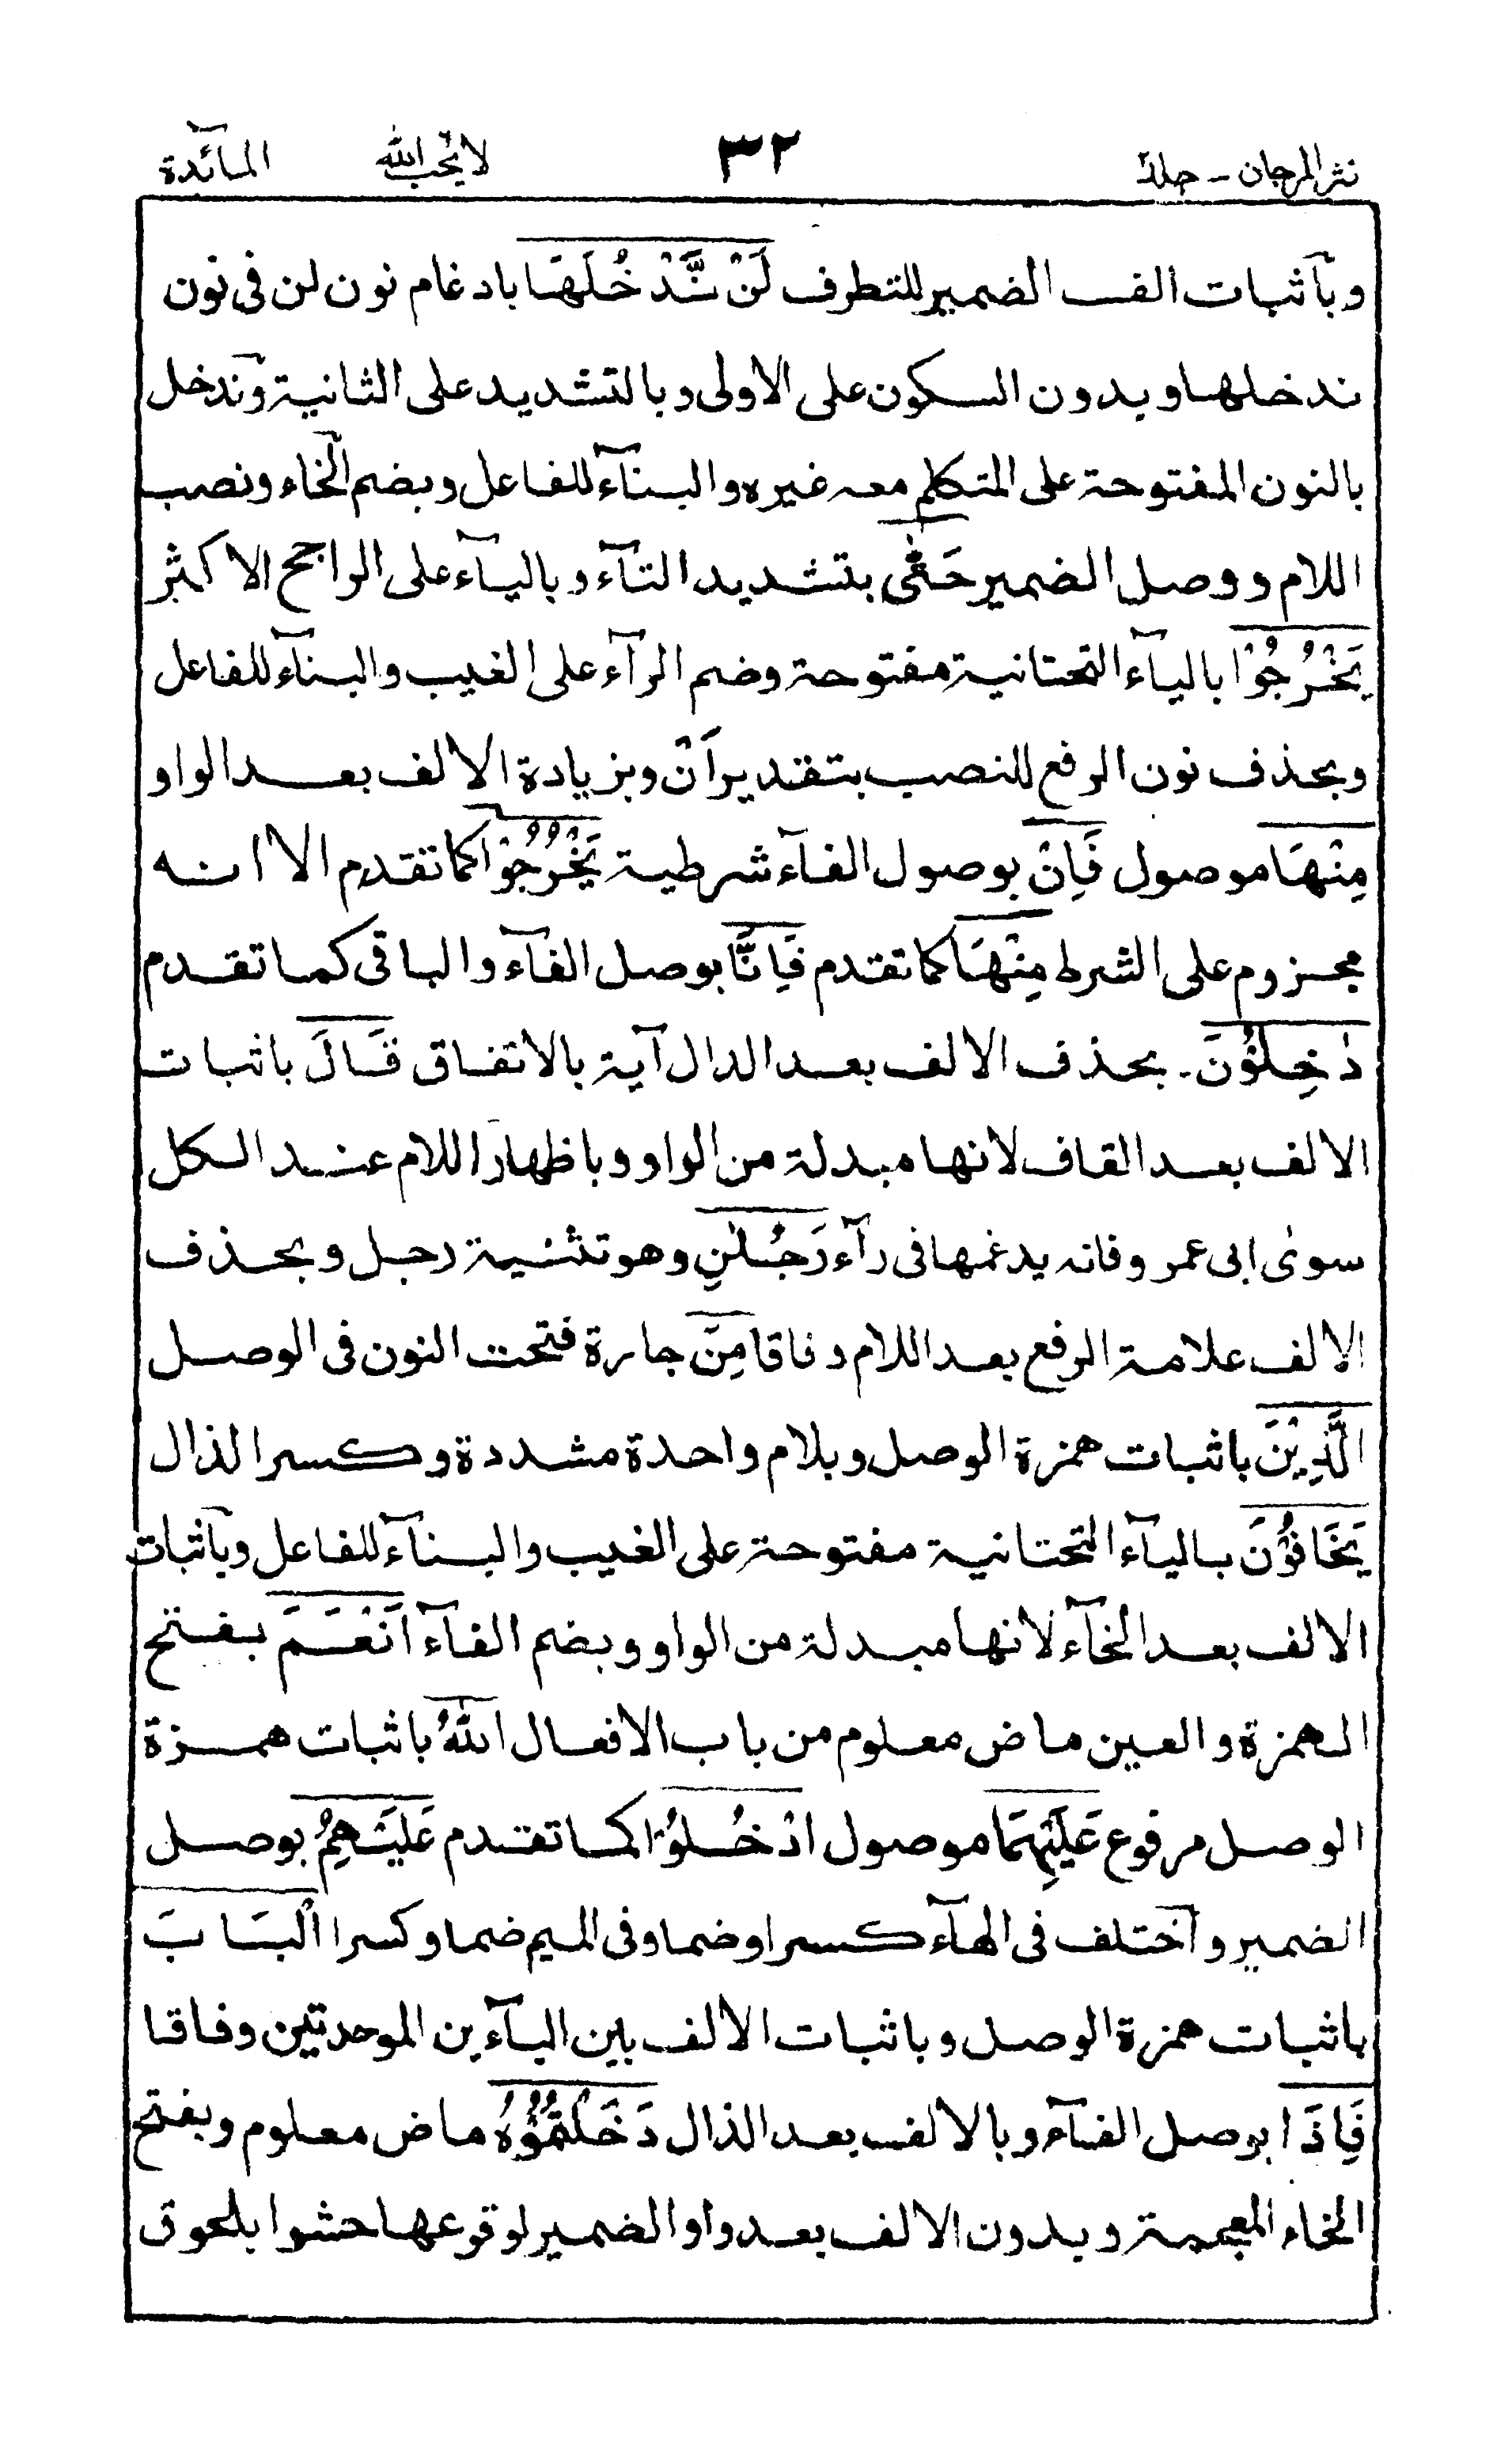 نثر المرجان - جلد ٢ ٣٢ لا يُحب الله المآئدة
وبآثبات الف الضمير للتطرف لَنْ نَّدْخُلَهَا بادغام نون لن فى نون
ندخلها وبدون السكون على الاولى وبالتشديد على الثانية وندخل
بالنون المفتوحة على المتكلم معه غيره والبنآء للفاعل وبضم الخاء ونصب
اللام ووصل الضمير حَتّٰى بتشديد التآء وباليآء على الراجح الاكثر
يَخْرُجُوْا باليآء التحتانية مفتوحة وضم الرآء على الغيب والبنآء للفاعل
وبحذف نون الرفع للنصب بتقدير اَنْ وبزيادة الالف بعد الواو
مِنْهَا موصول فَاِنْ بوصول الفآء شرطية يَخْرُجُوْا كما تقدم الا انه
مجزوم على الشرط مِنْهَا كما تقدم فَاِنَّا بوصل الفآء والباقى كما تقدم
دٰخِلُوْنَ۔ بحذف الالف بعد الدال آية بالاتفاق قَالَ باثبات
الالف بعد القاف لانها مبدلة من الواو وباظهار اللام عند الكل
سوىٰ ابى عمرو فانه يدغمها فى رآء رَجُلٰنِ وهو تثنية رجل وبحذف
الالف علامة الرفع بعد اللام وفاقا مِنَ جارة فتحت النون فى الوصل
الَّذِيْنَ باثبات همزة الوصل وبلام واحدة مشددة وكسر الذال
يَخَافُوْنَ باليآء التحتانية مفتوحة على الغيب والبنآء للفاعل وبآثبات
الالف بعد الخآء لانها مبدلة من الواو وبضم الفآء اَنْعَمَ بفتح
الهمزة والعين ماض معلوم من باب الافعال اللهُ باثبات همزة
الوصل مرفوع عَلَيْهِمَا موصول ادْخُلُوْا كما تقدم عَلَيْهِمُ بوصل
الضمير وآختلف فى الهآء كسرا وضما وفى الميم ضما وكسرا الْبَابَ
باثبات همزة الوصل وباثبات الالف بين البآءين الموحدتين وفاقا
فَاِذَا بوصل الفآء وبالالف بعد الذال دَخَلْتُمُوْهُ ماض معلوم وبفتح
الخاء المعجمة وبدون الالف بعد واو الضمير لوقوعها حشوا بلحوق